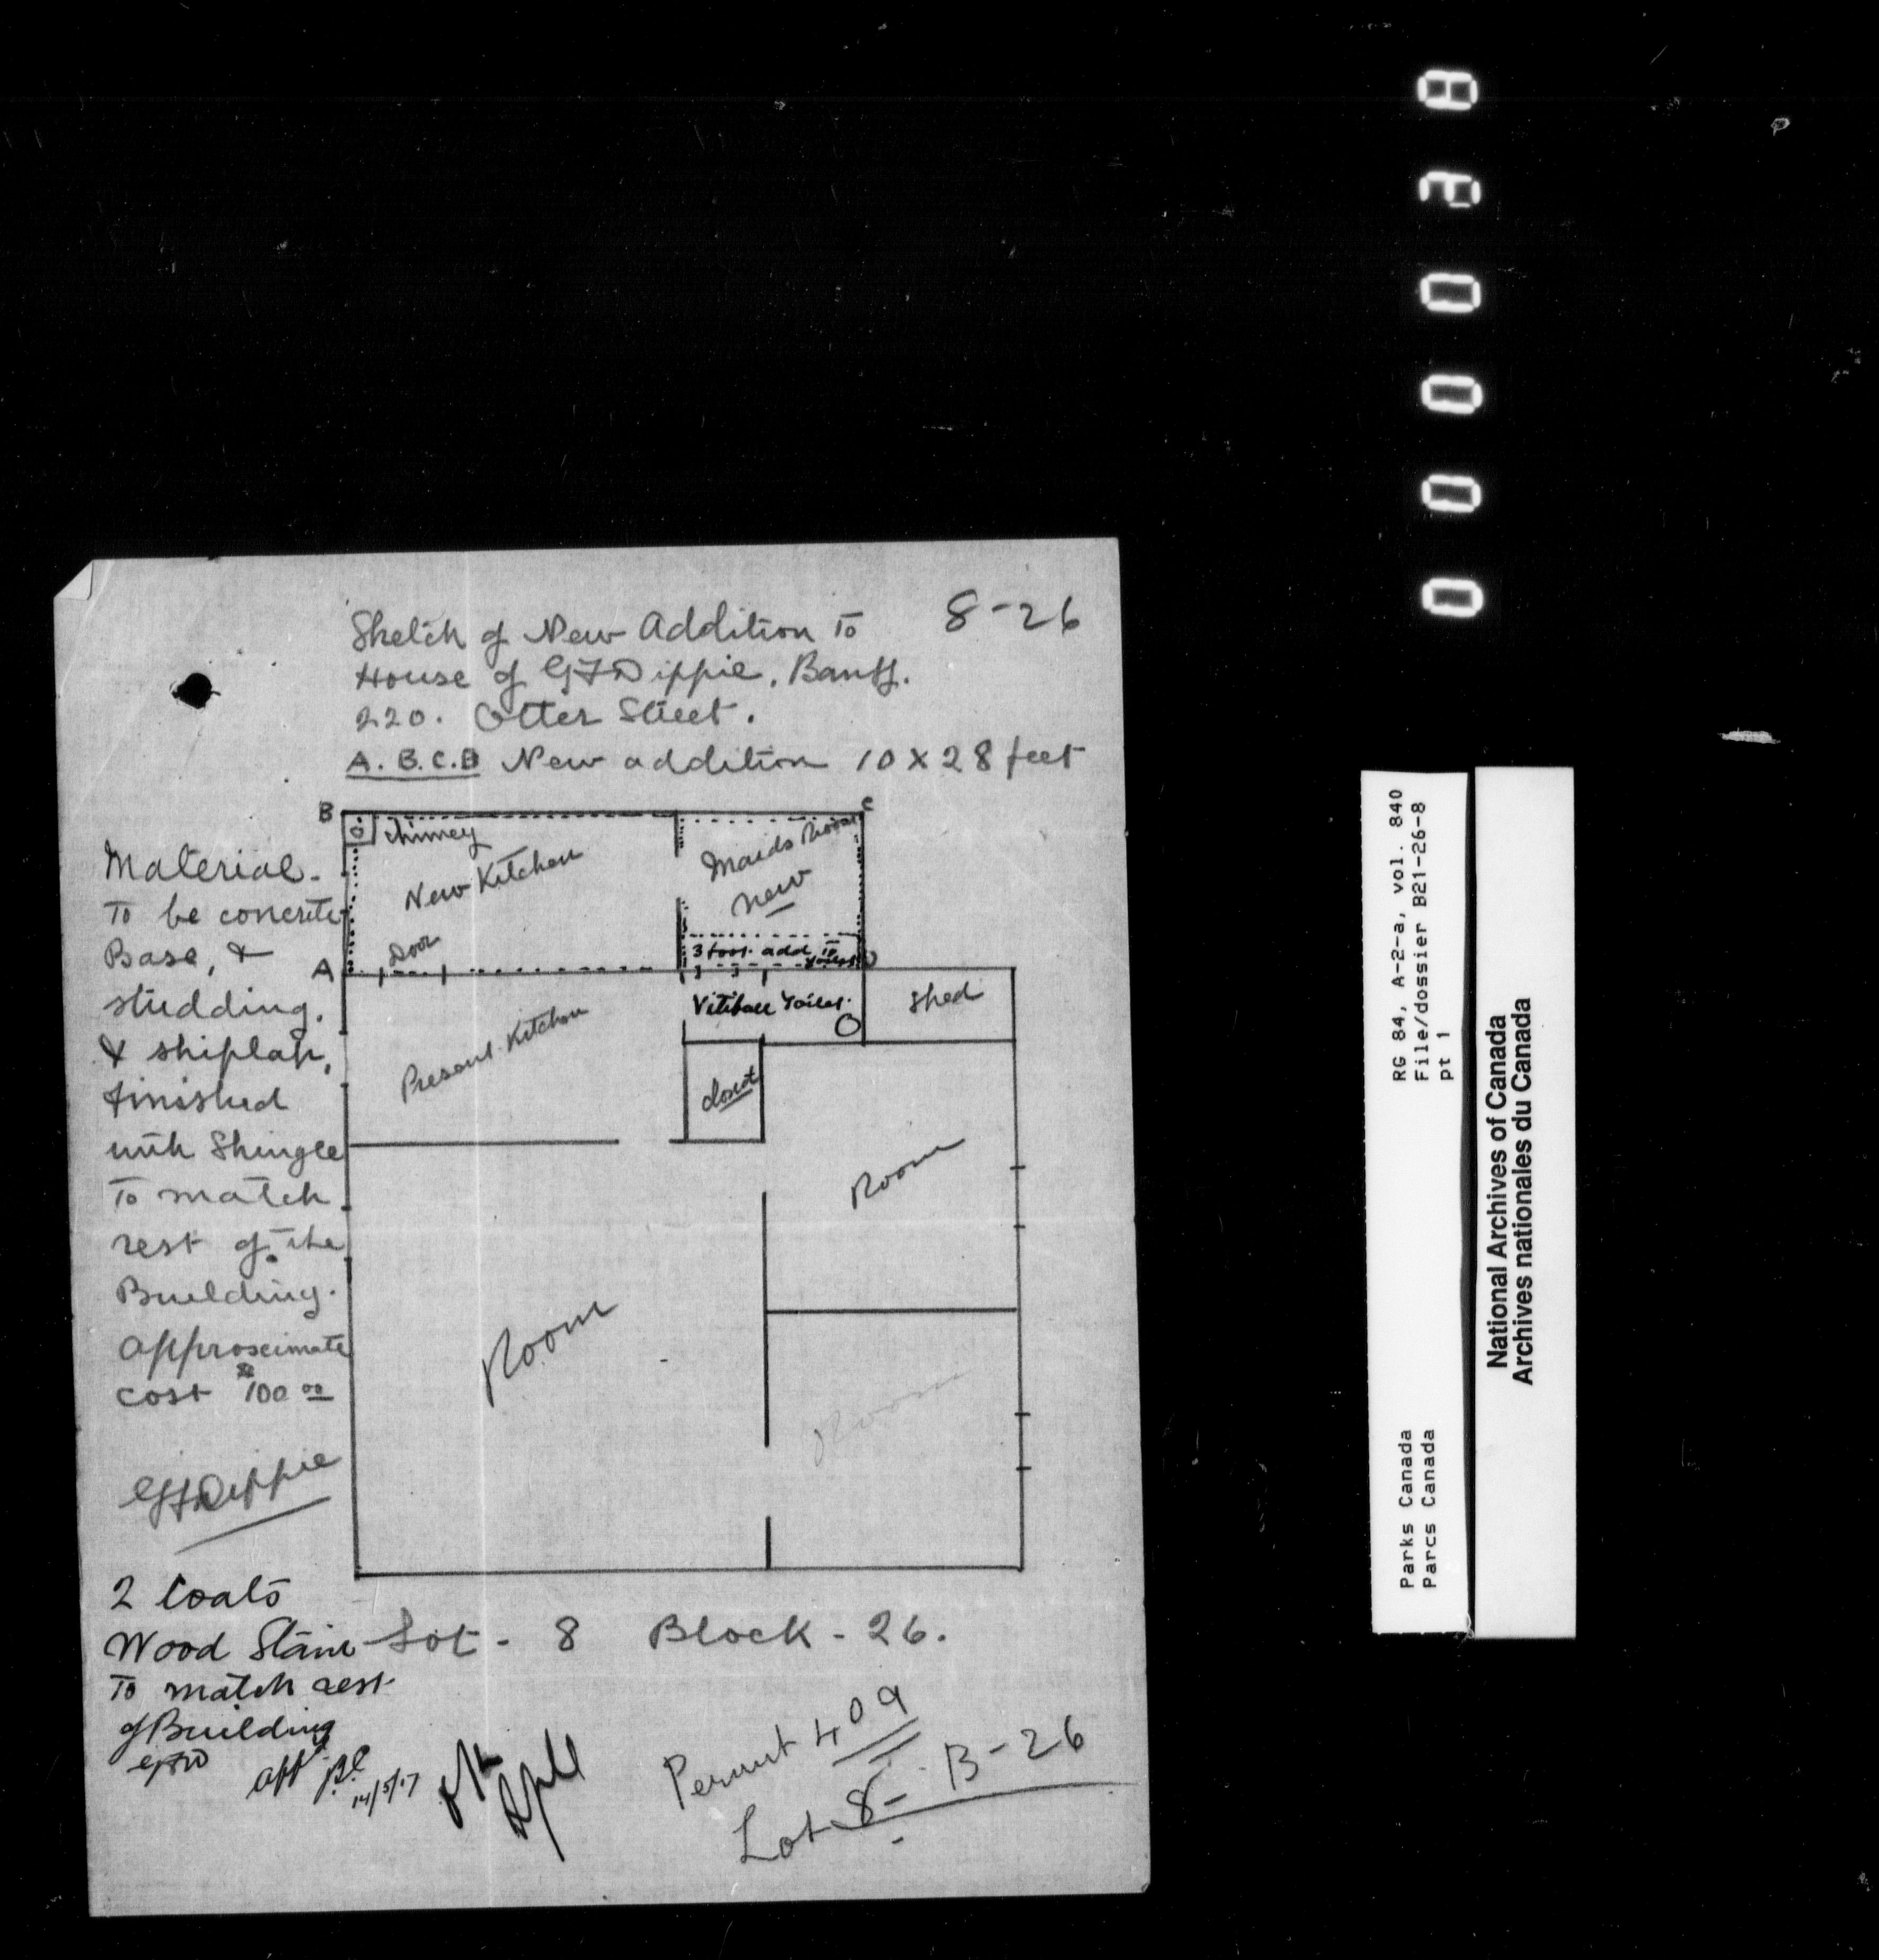 8-26
Sketch of New Addition To
House of GFDippie, Banff.
220. Otter Street.
A. B. C. D New addition 10 X 28 feet
B
C
chimney
New Kitchen
Maids Room
new
Door
3 foot add to
toilet
A
D
Vitibule Toilet.
shed
Present Kitchen
closet
Room
Room
Room
Material.
To be concrete
Base, &
studding.
& shiplap,
finished
with Shingle
To match
rest of the
Building.
approximate
cost $100 00
GFDippie
2 Coats
Wood Stain
To match rest
of Building
GFD
Lot - 8 Block - 26.
App'd
14/5/17
Permit 409
Lot 8- B-26
000028
RG 84, A-2-a, vol. 840
File/dossier B21-26-8
pt 1
Parks Canada
Parcs Canada
National Archives of Canada
Archives nationales du Canada